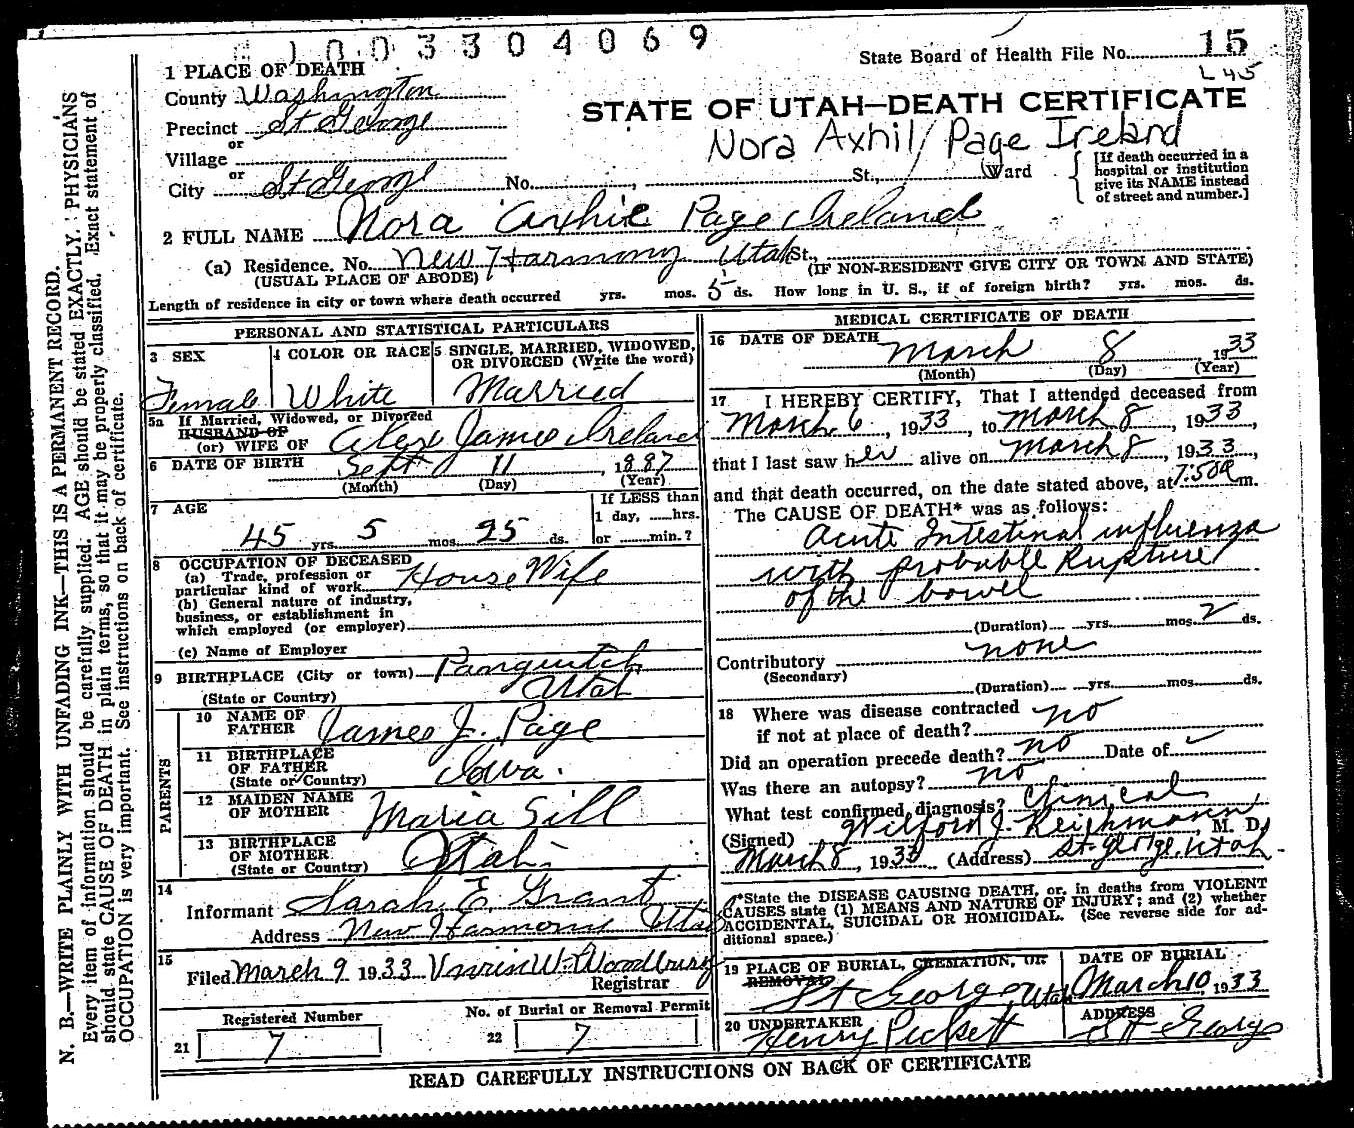 1003304069
State Board of Health File No. 15
L 45
STATE OF UTAH—DEATH CERTIFICATE
Nora Axhil/Page Ireland
1 PLACE OF DEATH
County Washington
Precinct St George
or
Village
or
City St George No. , St., Ward
[If death occurred in a
hospital or institution
give its NAME instead
of street and number.]
2 FULL NAME Nora Axhie Page Ireland
(a) Residence. No. New Harmony Utah St.,
(USUAL PLACE OF ABODE) (IF NON-RESIDENT GIVE CITY OR TOWN AND STATE)
Length of residence in city or town where death occurred yrs. mos. 5 ds. How long in U. S., if of foreign birth? yrs. mos. ds.
PERSONAL AND STATISTICAL PARTICULARS
3 SEX 4 COLOR OR RACE 5 SINGLE, MARRIED, WIDOWED,
OR DIVORCED (Write the word)
Female White Married
5a If Married, Widowed, or Divorced
HUSBAND OF
(or) WIFE OF Alex James Ireland
6 DATE OF BIRTH Sept 11, 1887
(Month) (Day) (Year)
7 AGE
45 yrs. 5 mos. 25 ds.
If LESS than
1 day, hrs.
or min.?
8 OCCUPATION OF DECEASED
(a) Trade, profession or
particular kind of work House Wife
(b) General nature of industry,
business, or establishment in
which employed (or employer)
(c) Name of Employer
9 BIRTHPLACE (City or town) Panguitch
(State or Country) Utah
PARENTS
10 NAME OF
FATHER James J. Page
11 BIRTHPLACE
OF FATHER
(State or Country) Iowa.
12 MAIDEN NAME
OF MOTHER Maria Sill
13 BIRTHPLACE
OF MOTHER
(State or Country) Utah
14
Informant Sarah E. Grant
Address New Harmony Utah
15
Filed March 9 1933 W. Woodbury
Registrar
Registered Number
21 7
No. of Burial or Removal Permit
22 7
MEDICAL CERTIFICATE OF DEATH
16 DATE OF DEATH March 8, 1933
(Month) (Day) (Year)
17 I HEREBY CERTIFY, That I attended deceased from
March 6, 1933, to March 8, 1933,
that I last saw her alive on March 8, 1933,
and that death occurred, on the date stated above, at 7:50a m.
The CAUSE OF DEATH* was as follows:
Acute Intestinal influenza
with probable Rupture
of the bowel
(Duration) yrs. mos. 2 ds.
Contributory none
(Secondary)
(Duration) yrs. mos. ds.
18 Where was disease contracted
if not at place of death? no
Did an operation precede death? no Date of
Was there an autopsy? no
What test confirmed diagnosis? Clinical
(Signed) Wilford J. Reichmann, M. D.
March 8, 1933 (Address) St. George, Utah
*State the DISEASE CAUSING DEATH, or, in deaths from VIOLENT
CAUSES state (1) MEANS AND NATURE OF INJURY; and (2) whether
ACCIDENTAL, SUICIDAL OR HOMICIDAL. (See reverse side for ad-
ditional space.)
19 PLACE OF BURIAL, CREMATION, OR
REMOVAL
St George, Utah
DATE OF BURIAL
March 10, 1933
20 UNDERTAKER
Henry Pickett
ADDRESS
St George
READ CAREFULLY INSTRUCTIONS ON BACK OF CERTIFICATE
N. B.—WRITE PLAINLY WITH UNFADING INK—THIS IS A PERMANENT RECORD.
Every item of information should be carefully supplied. AGE should be stated EXACTLY. PHYSICIANS
should state CAUSE OF DEATH in plain terms, so that it may be properly classified. Exact statement of
OCCUPATION is very important. See instructions on back of certificate.